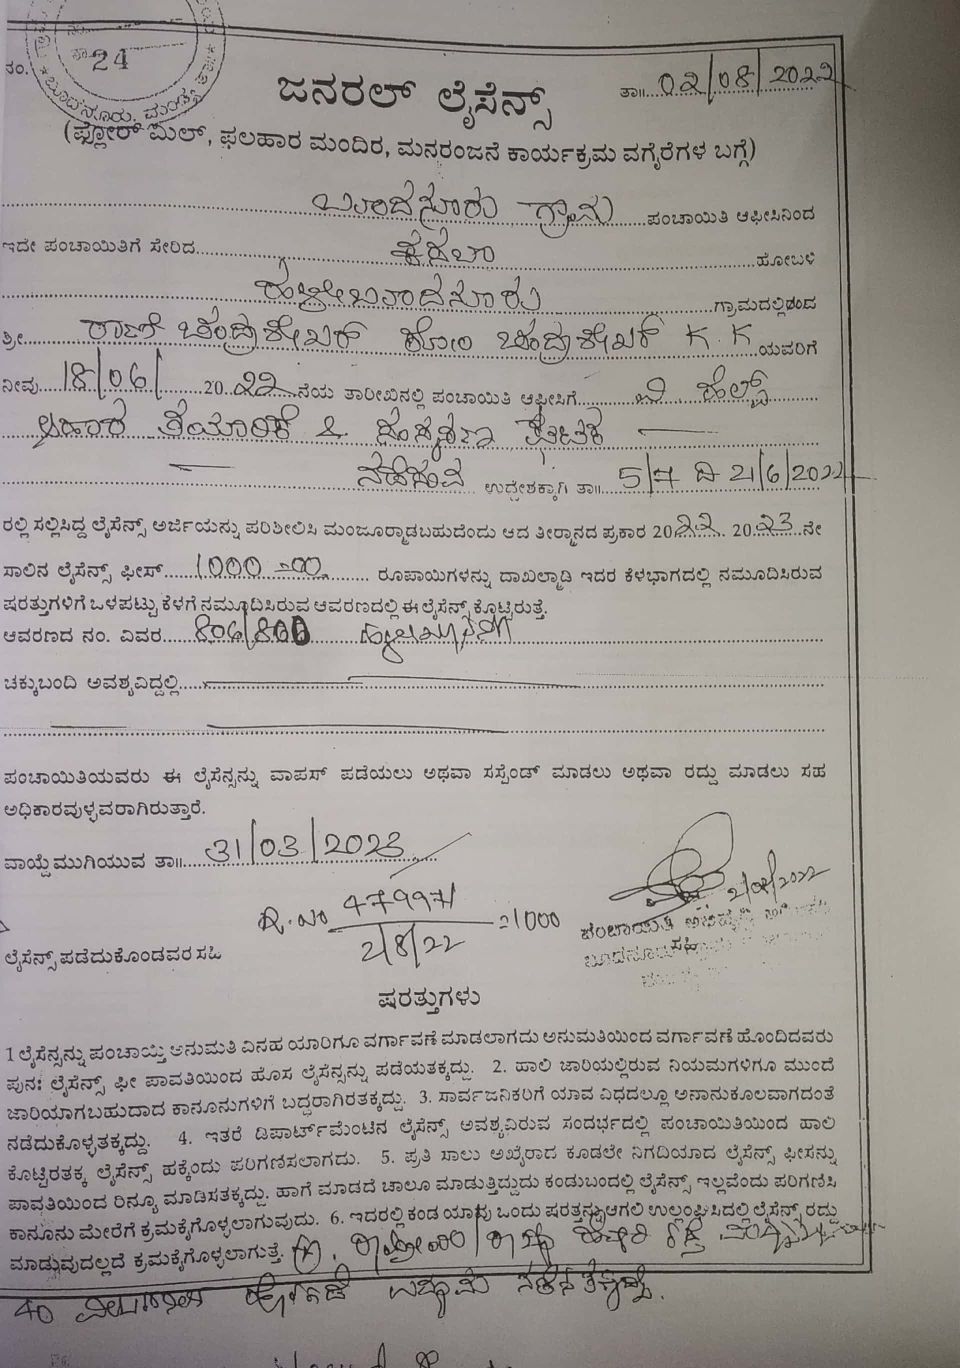 ನಂ.
24
ಬೂದನೂರು, ಮಂಡ್ಯ
ತಾ॥ 02/08/2022
ಜನರಲ್ ಲೈಸೆನ್ಸ್
(ಫ್ಲೋರ್ ಮಿಲ್, ಫಲಹಾರ ಮಂದಿರ, ಮನರಂಜನೆ ಕಾರ್ಯಕ್ರಮ ವಗೈರೆಗಳ ಬಗ್ಗೆ)
ಬೂದನೂರು ಗ್ರಾಮ ಪಂಚಾಯಿತಿ ಆಫೀಸಿನಿಂದ
ಇದೇ ಪಂಚಾಯಿತಿಗೆ ಸೇರಿದ ಕಸಬಾ ಹೋಬಳಿ
ಗ್ರಾಮದಲ್ಲಿರುವ
ಶ್ರೀ ಚಂದ್ರಶೇಖರ್ ಕೋಂ ಚಂದ್ರಶೇಖರ್ K.K ಯವರಿಗೆ
ನೀವು 18/06/ 2022 ನೆಯ ತಾರೀಖಿನಲ್ಲಿ ಪಂಚಾಯಿತಿ ಆಫೀಸಿಗೆ
ಆಹಾರ ತಯಾರಿಕೆ & ಸಂಸ್ಕರಣಾ ಘಟಕ
ನಡೆಸುವ ಉದ್ದೇಶಕ್ಕಾಗಿ ತಾ॥ 5/7 ದಿ 21/6/2022
ರಲ್ಲಿ ಸಲ್ಲಿಸಿದ್ದ ಲೈಸೆನ್ಸ್ ಅರ್ಜಿಯನ್ನು ಪರಿಶೀಲಿಸಿ ಮಂಜೂರ್‍ಮಾಡಬಹುದೆಂದು ಆದ ತೀರ್‍ಮಾನದ ಪ್ರಕಾರ 2022. 2023ನೇ
ಸಾಲಿನ ಲೈಸೆನ್ಸ್ ಫೀಸ್ 1000=00 ರೂಪಾಯಿಗಳನ್ನು ದಾಖಲ್ಮಾಡಿ ಇದರ ಕೆಳಭಾಗದಲ್ಲಿ ನಮೂದಿಸಿರುವ
ಷರತ್ತುಗಳಿಗೆ ಒಳಪಟ್ಟು ಕೆಳಗೆ ನಮೂದಿಸಿರುವ ಆವರಣದಲ್ಲಿ ಈ ಲೈಸೆನ್ಸ್ ಕೊಟ್ಟಿರುತ್ತೆ.
ಆವರಣದ ನಂ. ವಿವರ 806/800
ಚಕ್ಕುಬಂದಿ ಅವಶ್ಯವಿದ್ದಲ್ಲಿ
ಪಂಚಾಯಿತಿಯವರು ಈ ಲೈಸೆನ್ಸನ್ನು ವಾಪಸ್ ಪಡೆಯಲು ಅಥವಾ ಸಸ್ಪೆಂಡ್ ಮಾಡಲು ಅಥವಾ ರದ್ದು ಮಾಡಲು ಸಹ
ಅಧಿಕಾರವುಳ್ಳವರಾಗಿರುತ್ತಾರೆ.
ವಾಯ್ದೆ ಮುಗಿಯುವ ತಾ॥ 31/03/2023
R.No 479971 =1000
2/8/22
2/08/2022
ಪಂಚಾಯಿತಿ ಅಭಿವೃದ್ಧಿ ಅಧಿಕಾರಿ
ಸಹಿ
ಲೈಸೆನ್ಸ್ ಪಡೆದುಕೊಂಡವರ ಸಹಿ
ಷರತ್ತುಗಳು
1 ಲೈಸೆನ್ಸನ್ನು ಪಂಚಾಯ್ತಿ ಅನುಮತಿ ವಿನಹ ಯಾರಿಗೂ ವರ್ಗಾವಣೆ ಮಾಡಲಾಗದು ಅನುಮತಿಯಿಂದ ವರ್ಗಾವಣೆ ಹೊಂದಿದವರು
ಪುನಃ ಲೈಸೆನ್ಸ್ ಫೀ ಪಾವತಿಯಿಂದ ಹೊಸ ಲೈಸೆನ್ಸನ್ನು ಪಡೆಯತಕ್ಕದ್ದು. 2. ಹಾಲಿ ಜಾರಿಯಲ್ಲಿರುವ ನಿಯಮಗಳಿಗೂ ಮುಂದೆ
ಜಾರಿಯಾಗಬಹುದಾದ ಕಾನೂನುಗಳಿಗೆ ಬದ್ಧರಾಗಿರತಕ್ಕದ್ದು. 3. ಸಾರ್ವಜನಿಕರಿಗೆ ಯಾವ ವಿಧದಲ್ಲೂ ಅನಾನುಕೂಲವಾಗದಂತೆ
ನಡೆದುಕೊಳ್ಳತಕ್ಕದ್ದು. 4. ಇತರೆ ಡಿಪಾರ್ಟ್‌ಮೆಂಟಿನ ಲೈಸೆನ್ಸ್ ಅವಶ್ಯವಿರುವ ಸಂದರ್ಭದಲ್ಲಿ ಪಂಚಾಯಿತಿಯಿಂದ ಹಾಲಿ
ಕೊಟ್ಟಿರತಕ್ಕ ಲೈಸೆನ್ಸ್ ಹಕ್ಕೆಂದು ಪರಿಗಣಿಸಲಾಗದು. 5. ಪ್ರತಿ ಸಾಲು ಅಖೈರಾದ ಕೂಡಲೇ ನಿಗದಿಯಾದ ಲೈಸೆನ್ಸ್ ಫೀಸನ್ನು
ಪಾವತಿಯಿಂದ ರಿನ್ಯೂ ಮಾಡಿಸತಕ್ಕದ್ದು. ಹಾಗೆ ಮಾಡದೆ ಚಾಲೂ ಮಾಡುತ್ತಿದ್ದುದು ಕಂಡುಬಂದಲ್ಲಿ ಲೈಸೆನ್ಸ್ ಇಲ್ಲವೆಂದು ಪರಿಗಣಿಸಿ
ಕಾನೂನು ಮೇರೆಗೆ ಕ್ರಮಕೈಗೊಳ್ಳಲಾಗುವುದು. 6. ಇದರಲ್ಲಿ ಕಂಡ ಯಾವು ಒಂದು ಷರತ್ತನ್ನು ಆಗಲಿ ಉಲ್ಲಂಘಿಸಿದಲ್ಲಿ ಲೈಸೆನ್ಸ್ ರದ್ದು
ಮಾಡ್ತುವುದಲ್ಲದೆ ಕ್ರಮಕೈಗೊಳ್ಳಲಾಗುತ್ತೆ.
40